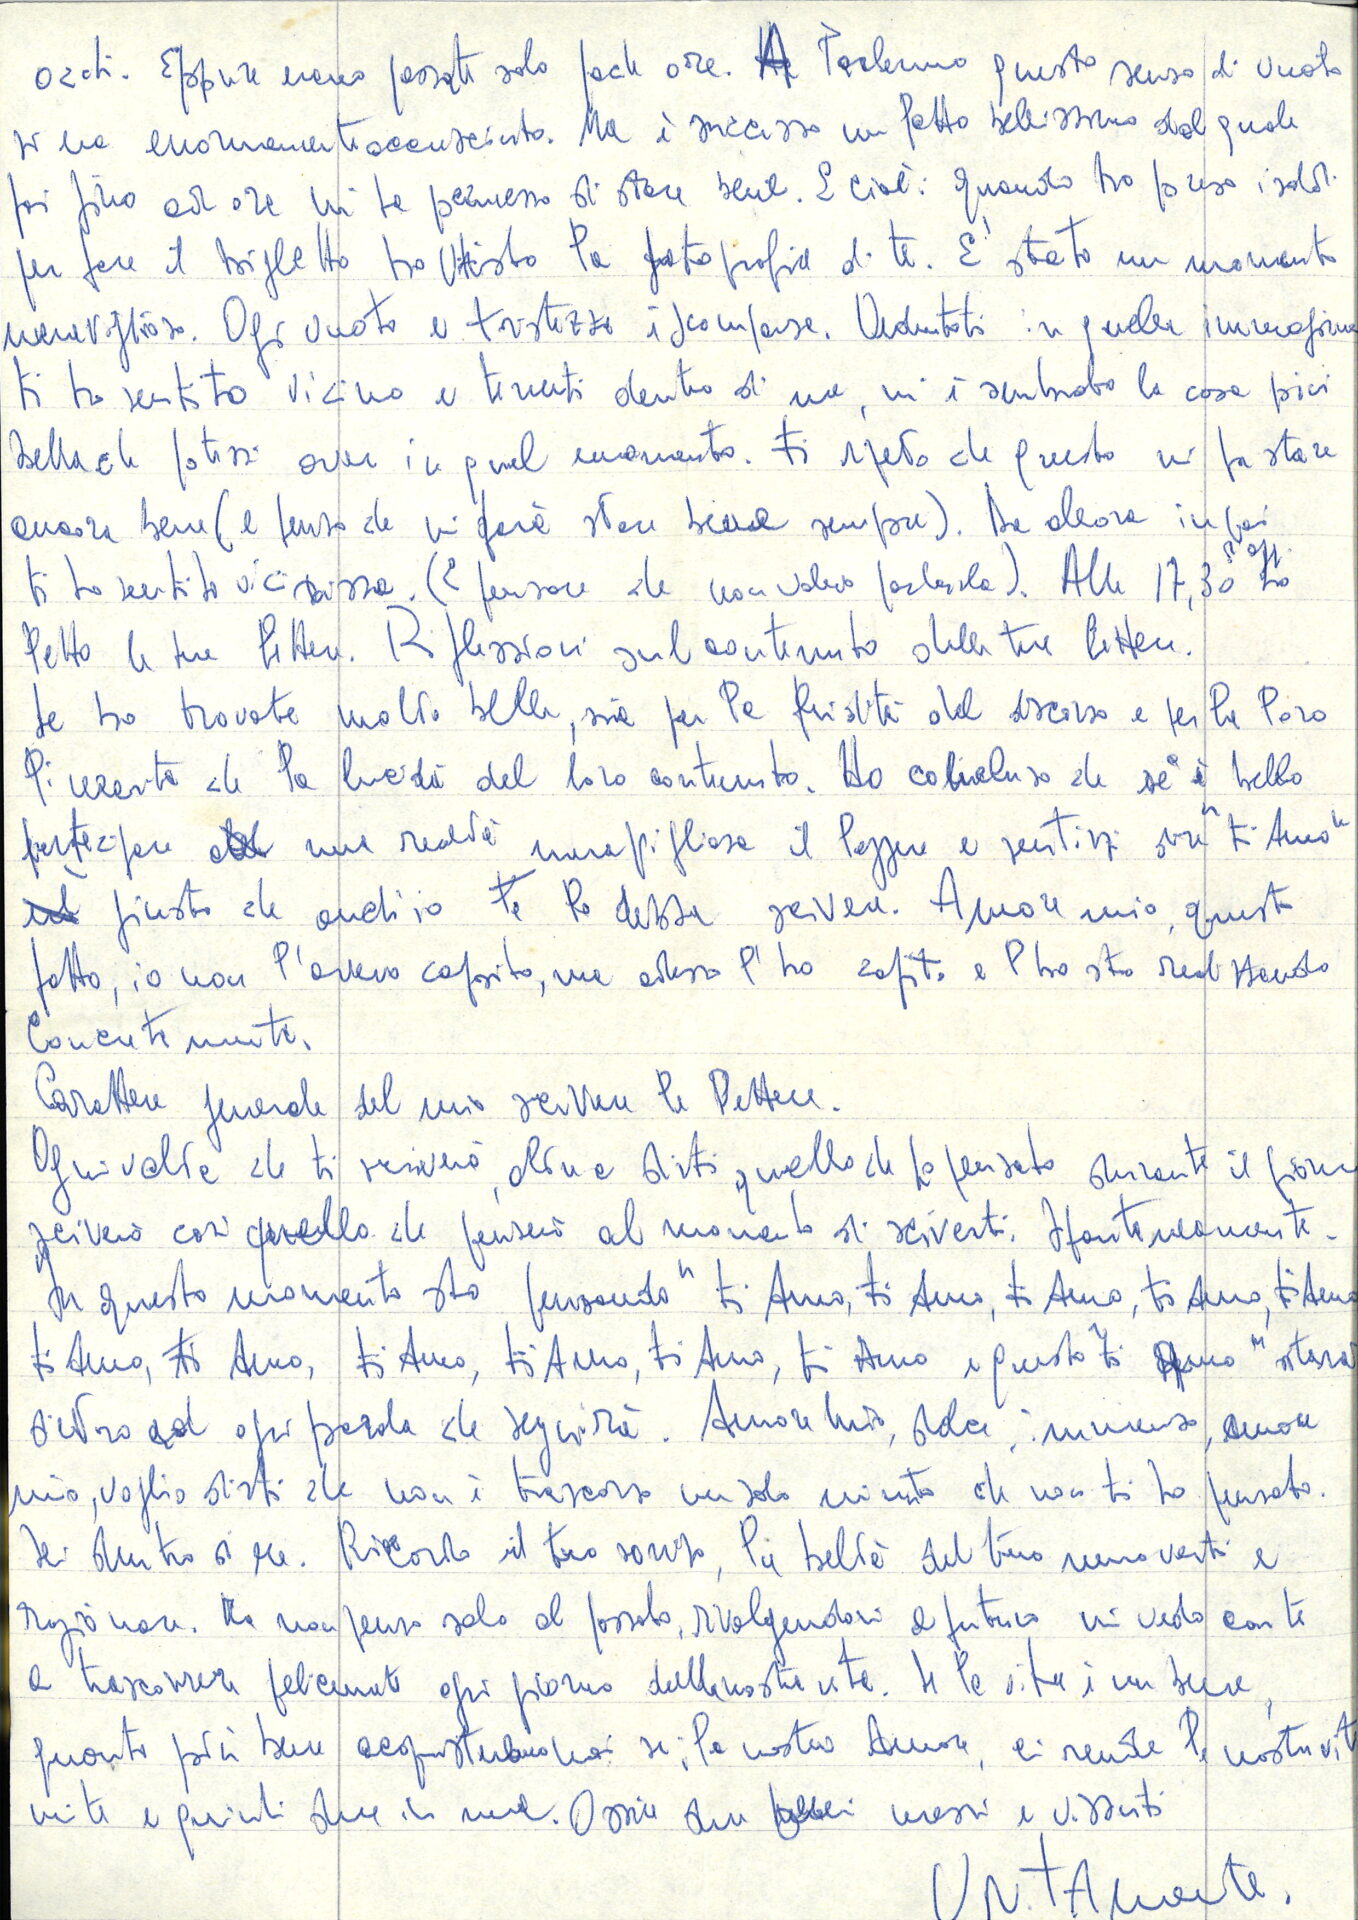 occhi. Eppure erano passate solo poche ore. A Palermo questo senso di vuoto
si era enormemente accresciuto. Ma è successo un fatto bellissimo dal quale
poi fino ad ora mi ha permesso di stare bene. E cioè: quando ho preso i soldi
per fare il biglietto ho visto la fotografia di te. E' stato un momento
meraviglioso. Ogni vuoto e tristezza è scomparsa. Vedendoti in quella immagine
ti ho sentito vicino e tenerti dentro di me, mi è sembrato la cosa più
bella che potessi avere in quel momento. Ti ripeto che questo mi fa stare
ancora bene (e penso che mi farà stare bene sempre). Da allora in poi
ti ho sentito vicinissima. (E pensare che non volevo portarla). Alle 17,30 ho
letto le tue lettere. Riflessioni sul contenuto delle tue lettere.
Le ho trovate molto belle, sia per la fluidità del discorso e per la loro
linearità che la lucidità del loro contenuto. Ho concluso che se è bello
partecipare ad una realtà meravigliosa il leggere e sentirsi dire "ti Amo"
è giusto che anch'io te lo debba scrivere. Amore mio, questo
fatto, io non l'avevo capito, ma adesso l'ho capito e l'ho sto realizzando
Concretamente.
Carattere generale del mio scrivere le lettere.
Ogni volta che ti scriverò, oltre a dirti quello che ho pensato durante il giorno
scriverò così quello che penserò al momento di scriverti. Spontaneamente.
"In questo momento sto pensando" ti Amo, ti Amo, ti Amo, ti Amo, ti Amo
ti Amo, ti Amo, ti Amo, ti Amo, ti Amo, ti Amo e questo "ti Amo" starà
dietro ad ogni parola che seguirà. Amore mio, dolce, immenso, amore
mio, voglio dirti che non è trascorso un solo minuto che non ti ho pensato.
Sei dentro di me. Ricordo il tuo sorriso, la beltà del tuo muoverti e
ragionare. Ma non penso solo al passato, rivolgendomi al futuro mi vedo con te
a trascorrere felicemente ogni giorno della nostra vita. Se la vita è un bene,
quanto più bene acquisteremo noi se, la nostro Amore, ci rende le nostre vite
unite e quindi due in una. Ossia due messi e vissuti
UNITAmente.